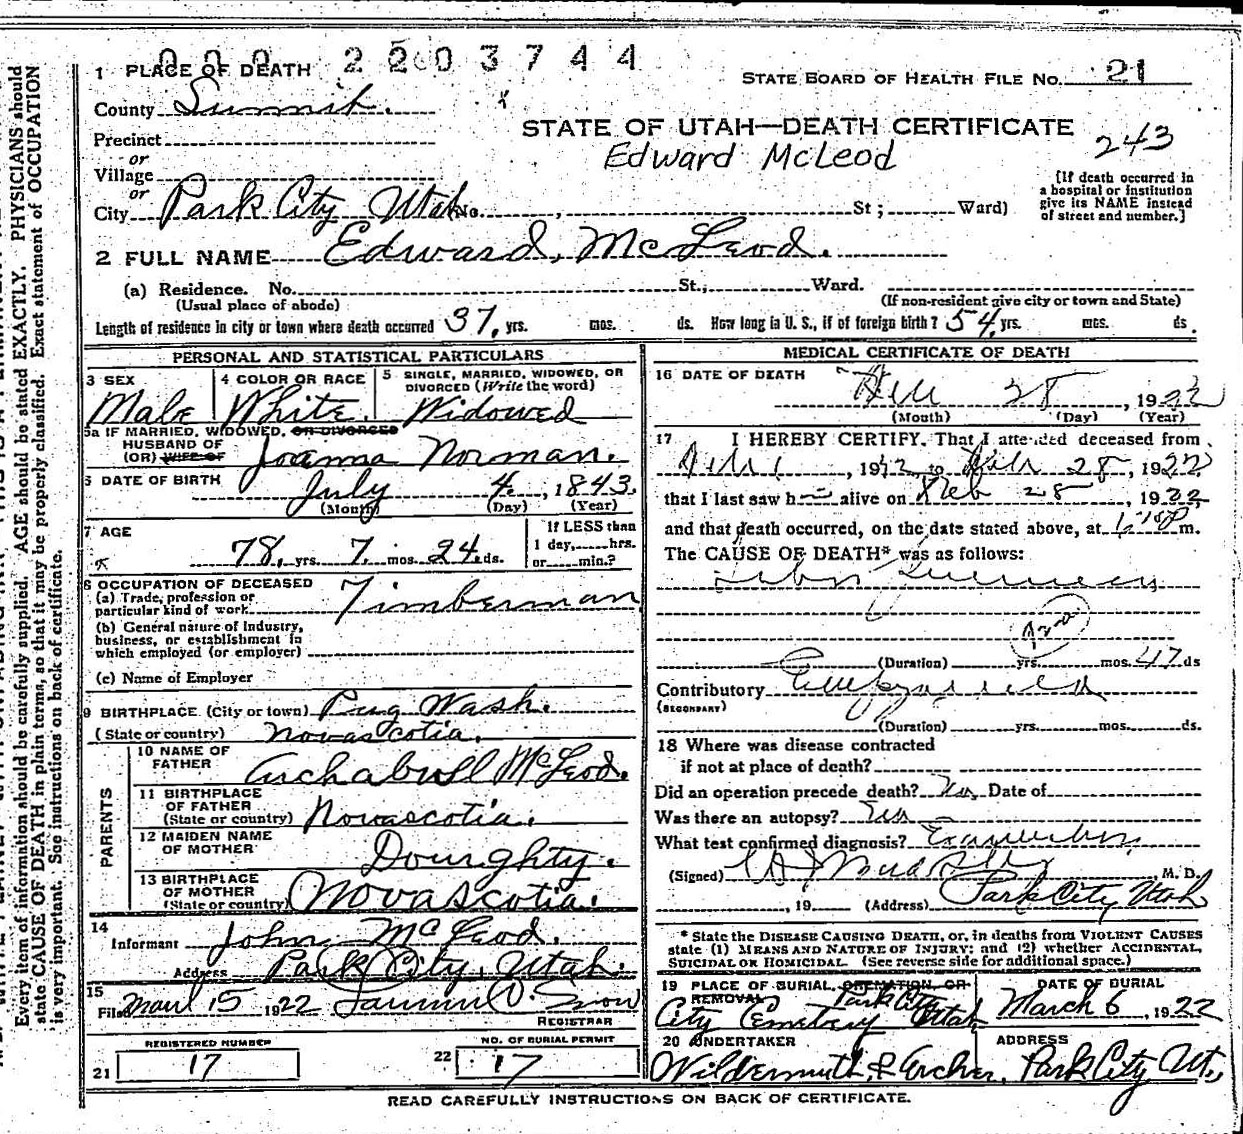 0 0 0 2 2 0 3 7 4 4
1 PLACE OF DEATH
STATE BOARD OF HEALTH FILE No. 21
County Summit.
STATE OF UTAH—DEATH CERTIFICATE
243
Precinct
Edward McLeod
or
Village
or
City Park City Utah No. , St ; Ward)
[If death occurred in
a hospital or institution
give its NAME instead
of street and number.]
2 FULL NAME Edward, McLeod.
(a) Residence. No. St.; Ward.
(Usual place of abode) (If non-resident give city or town and State)
Length of residence in city or town where death occurred 37, yrs. mos. ds. How long in U. S., if of foreign birth ? 54, yrs. mos. ds.
PERSONAL AND STATISTICAL PARTICULARS
3 SEX 4 COLOR OR RACE 5 SINGLE, MARRIED, WIDOWED, OR
DIVORCED (Write the word)
Male White. Widowed
5a IF MARRIED, WIDOWED, OR DIVORCED
HUSBAND OF
(OR) WIFE OF Joanna Norman.
6 DATE OF BIRTH
July 4, , 1843.
(Month) (Day) (Year)
7 AGE
If LESS than
1 day, hrs.
or min.?
78, yrs. 7. mos. 24. ds.
8 OCCUPATION OF DECEASED
(a) Trade, profession or
particular kind of work Timberman
(b) General nature of Industry,
business, or establishment in
which employed (or employer)
(c) Name of Employer
9 BIRTHPLACE (City or town) Pug Wash.
(State or country) Novascotia.
PARENTS
10 NAME OF
FATHER McLeod.
11 BIRTHPLACE
OF FATHER
(State or country) Novascotia.
12 MAIDEN NAME
OF MOTHER Doughty.
13 BIRTHPLACE
OF MOTHER
(State or country) Novascotia.
14
Informant John McLeod.
Address Park City, Utah.
15
Filed 15 1922 Snow
REGISTRAR
REGISTERED NUMBER
21 17
NO. OF BURIAL PERMIT
22 17
MEDICAL CERTIFICATE OF DEATH
16 DATE OF DEATH
28 , 1922
(Month) (Day) (Year)
17 I HEREBY CERTIFY, That I attended deceased from
, 1922 to Feb 28, 1922
that I last saw h alive on Feb 28 , 1922
and that death occurred, on the date stated above, at m.
The CAUSE OF DEATH* was as follows:
(Duration) yrs. mos. ds
Contributory
(SECONDARY)
(Duration) yrs. mos. ds.
18 Where was disease contracted
if not at place of death?
Did an operation precede death? No, Date of
Was there an autopsy?
What test confirmed diagnosis?
(Signed) , M. D.
, 19 (Address) Park City Utah
* State the DISEASE CAUSING DEATH, or, in deaths from VIOLENT CAUSES
state (1) MEANS AND NATURE OF INJURY; and (2) whether ACCIDENTAL,
SUICIDAL OR HOMICIDAL. (See reverse side for additional space.)
19 PLACE OF BURIAL, CREMATION, OR
REMOVAL Park City
City Cemetery Utah
DATE OF BURIAL
March 6 , 1922
20 UNDERTAKER ADDRESS
Wildermuth, & Archer, Park City Ut.,
READ CAREFULLY INSTRUCTIONS ON BACK OF CERTIFICATE.
Every item of information should be carefully supplied. AGE should be stated EXACTLY. PHYSICIANS should
state CAUSE OF DEATH in plain terms, so that it may be properly classified. Exact statement of OCCUPATION
is very important. See instructions on back of certificate.